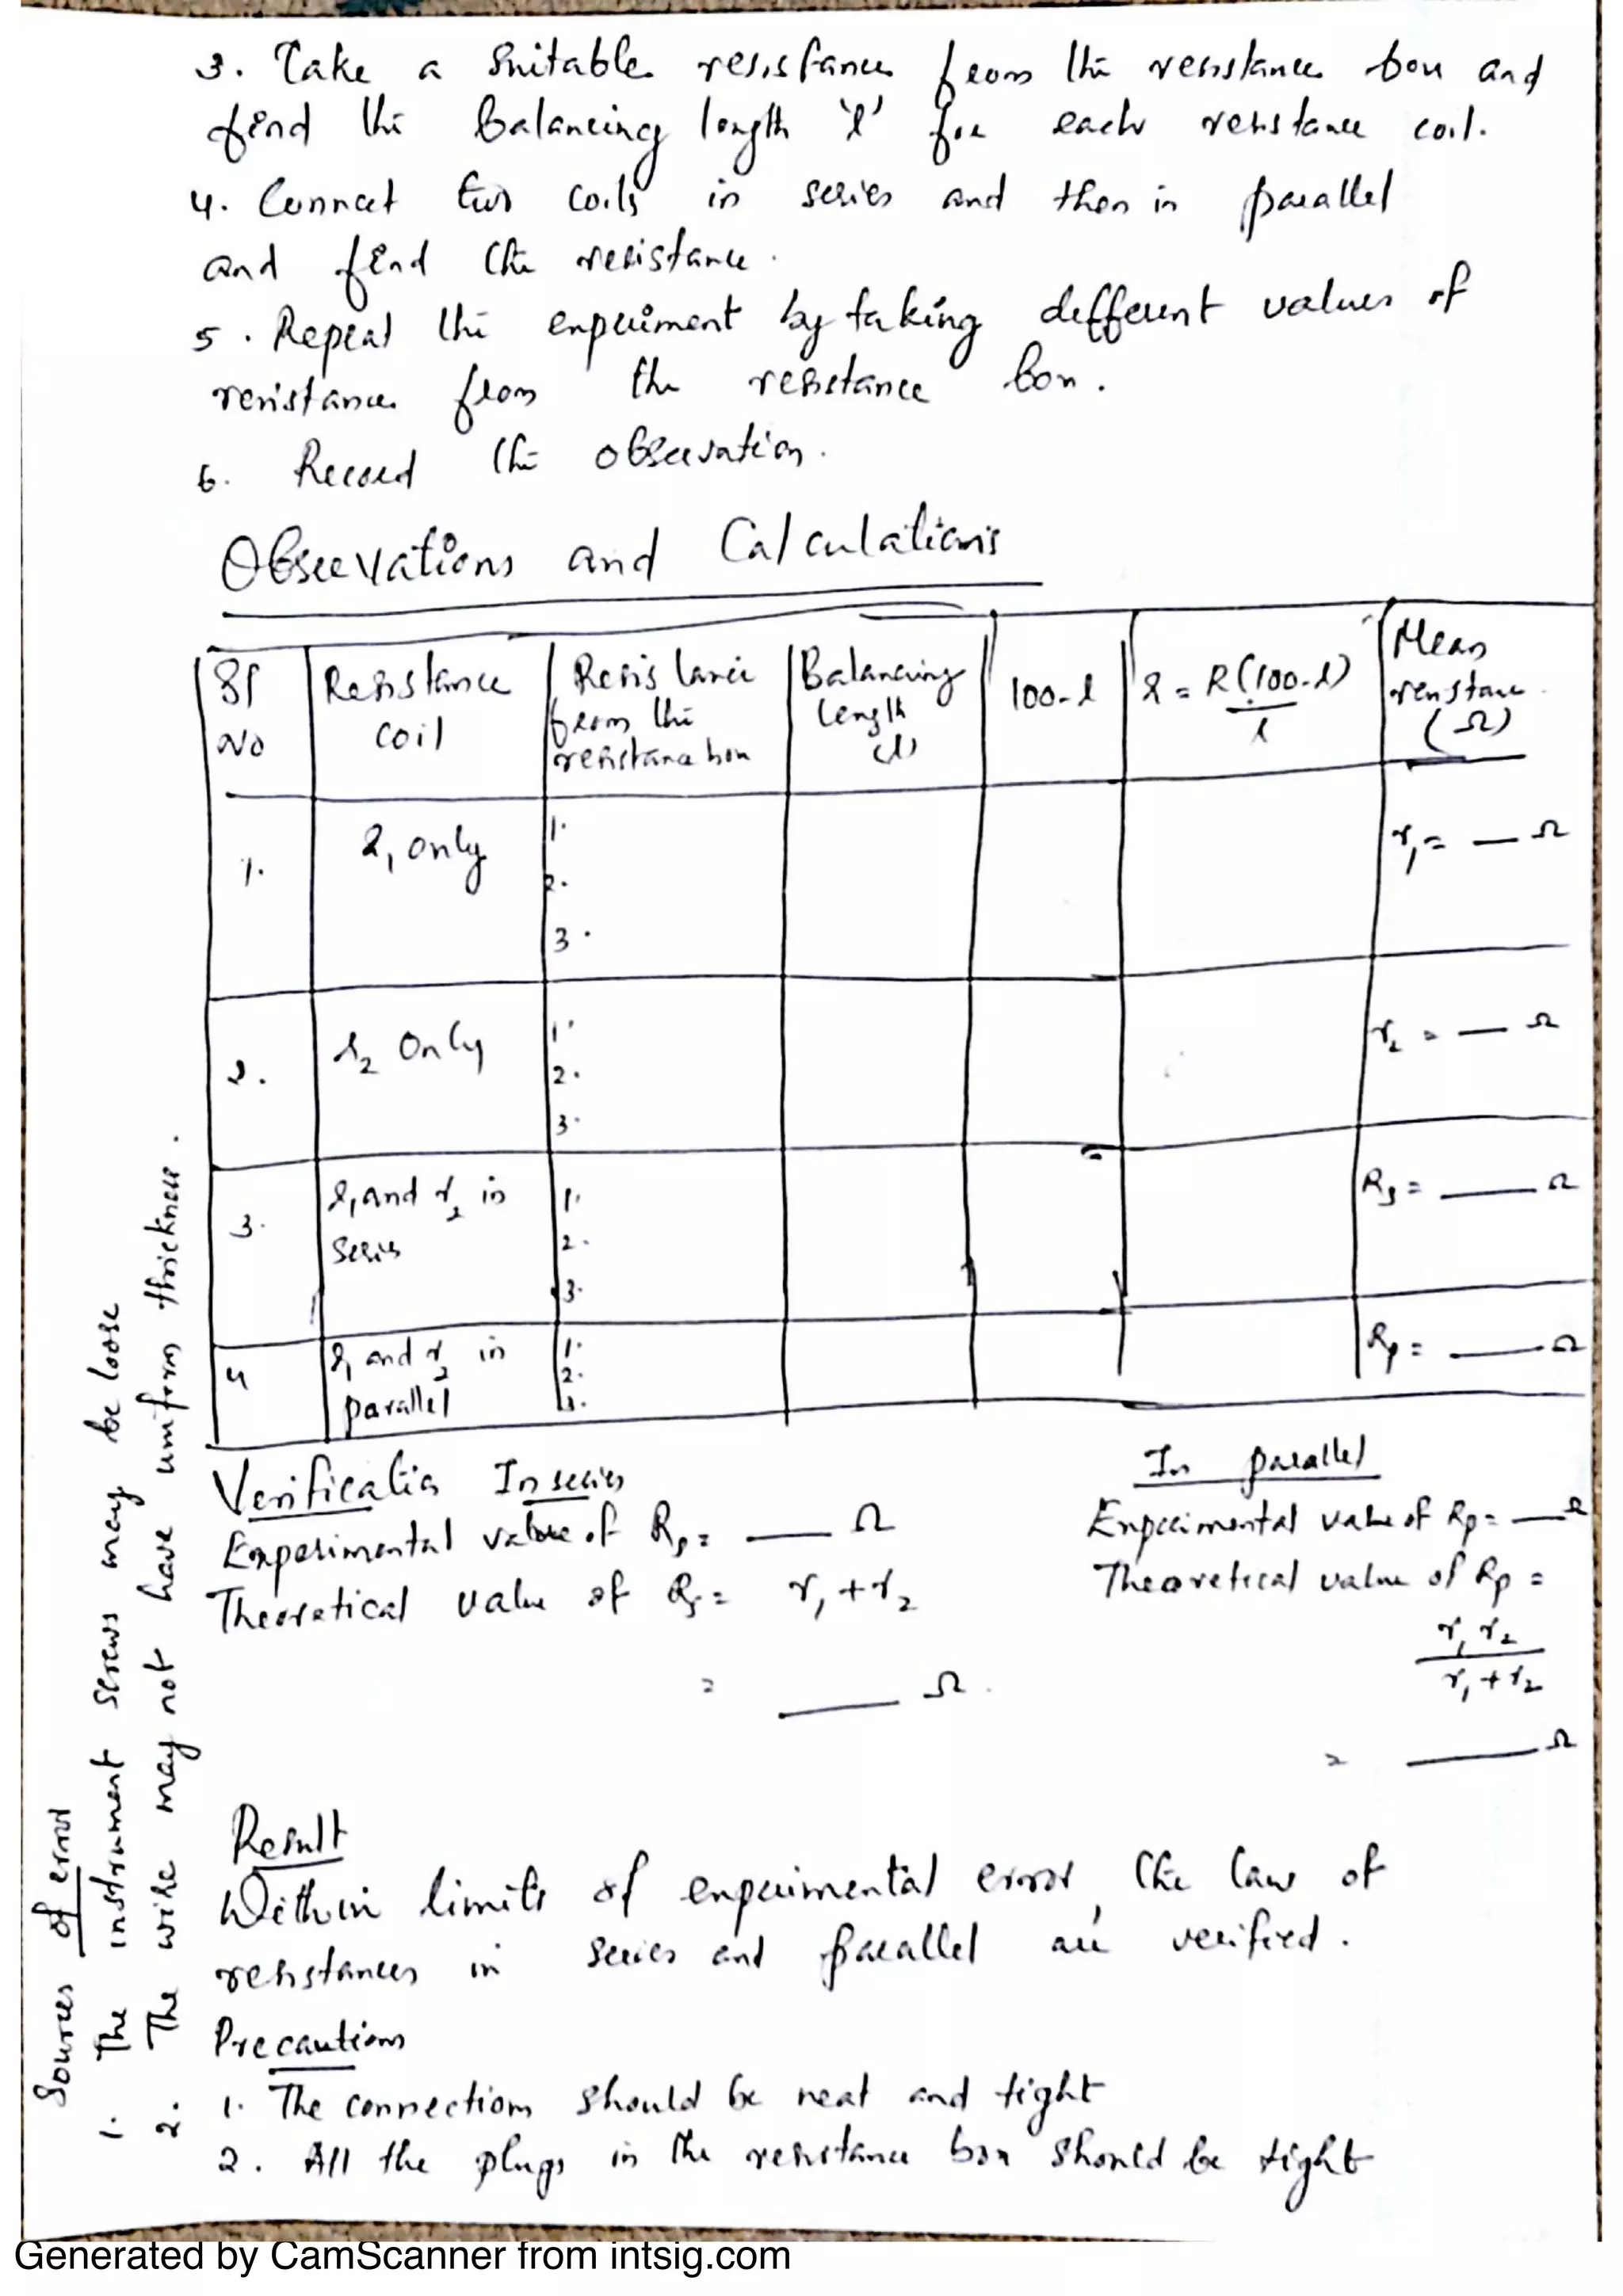 3. Take a Suitable resistance from the resistance box and
find the Balancing length 'l' for each resistance coil.
4. Connect two coils in series and then in parallel
and find the resistance.
5. Repeat the experiment by taking different values of
resistance from the resistance box.
6. Record the observation.
Observations and Calculations
Sl No
Resistance coil
Resistance from the resistance box
Balancing length (l)
100-l
r = R(100-l)/l
Mean resistance (Ω)
1.
r₁ only
1.
2.
3.
r₁ = — Ω
2.
r₂ Only
1.
2.
3.
r₂ = — Ω
3.
r₁ and r₂ in series
1.
2.
3.
Rs = — Ω
4
r₁ and r₂ in parallel
1.
2.
3.
Rp = — Ω
Verification In series
Experimental value of Rs = — Ω
Theoretical value of Rs = r₁ + r₂
= — Ω.
In parallel
Experimental value of Rp = — Ω
Theoretical value of Rp =
r₁ r₂
r₁ + r₂
= — Ω
Result
Within limits of experimental error, the law of
resistances in series and parallel are verified.
Precautions
1. The connections should be neat and tight
2. All the plugs in the resistance box should be tight
Sources of error
1. The instrument screws may be loose
2. The wire may not have uniform thickness.
Generated by CamScanner from intsig.com